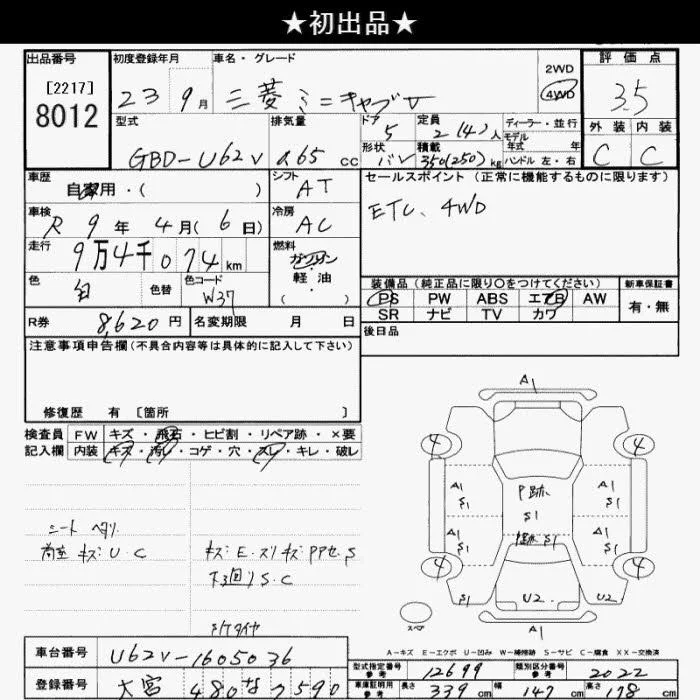 ★初出品★
出品番号 初度登録年月 車名・グレード 評価点
[2217]
8012
23 9月 三菱 ミニキャブV 2WD 4WD 3.5
型式 排気量 ドア 定員 ディーラー・並行 外装 内装
GBD-U62V 0.65 cc 5 2(4)人 モデル年式 年 C C
形状 積載 ハンドル 左・右
バン 350(250)kg
車歴 自家用・( ) シフト AT セールスポイント(正常に機能するものに限ります)
車検 R 9年 4月(6日) 冷房 AC ETC、4WD
走行 9万4千074km 燃料 ガソリン・軽油・( )
色 白 色替 色コード W37
装備品(純正品に限り○をつけてください) 新車保証書
PS PW ABS エアB AW 有・無
SR ナビ TV カワ
R券 8,620円 名変期限 月 日 後日品
注意事項申告欄(不具合内容等は具体的に記入して下さい)
修復歴 有 [箇所 ]
検査員 FW キズ・飛石・ヒビ割・リペア跡・×要
記入欄 内装 キズ・汚レ・コゲ・穴・スレ・キレ・破レ
A1
4 4
A1 S1 P跡 S1 A1 S1
A1 S1 S1 A1 S1
4 4
S1 U2 U2
A1
スペア
シート ヘタリ
荷室 キズ・U・C
キズ・E・スリキズ・PPセ・S
下回り S・C
A-キズ E-エクボ U-凹み W-補修跡 S-サビ C-腐食 XX-交換済
車台番号 U62V-1605036 型式指定番号 参考 12699 類別区分番号 参考 2022
登録番号 大宮 480 な 7590 車庫証明用 参考 長さ 339cm 幅 147cm 高さ 178cm